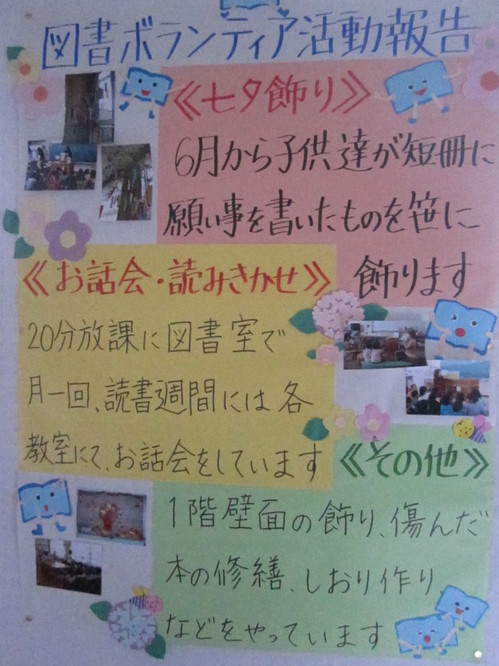 図書ボランティア活動報告
《七夕飾り》
6月から子供達が短冊に
願い事を書いたものを笹に
飾ります
《お話会・読みきかせ》
20分放課に図書室で
月一回、読書週間には各
教室にて、お話会をしています
《その他》
1階壁面の飾り、傷んだ
本の修繕、しおり作り
などをやっています